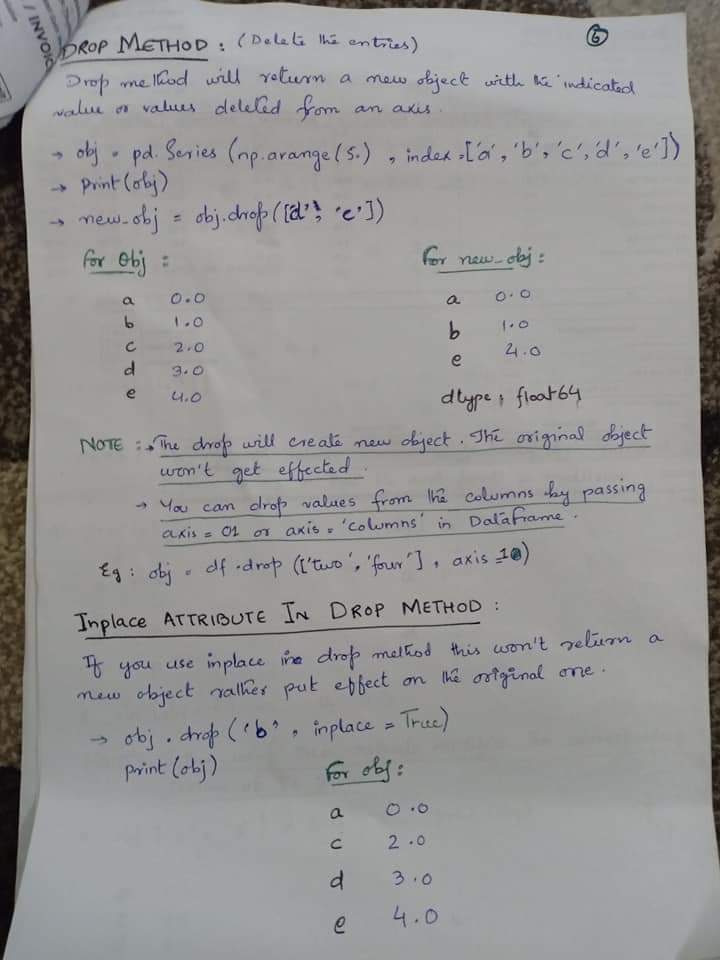 / INVOIC
6
DROP METHOD : (Delete the entries)
Drop method will return a new object with the indicated
value or values deleted from an axis.
→ obj = pd. Series (np.arange(5.) , index=['a', 'b', 'c', 'd', 'e'])
→ Print(obj)
→ new_obj = obj.drop(['d', 'c'])
For Obj :
a 0.0
b 1.0
c 2.0
d 3.0
e 4.0
For new_obj :
a 0.0
b 1.0
e 4.0
dtype : float64
NOTE : → The drop will create new object. The original object
won't get effected.
→ You can drop values from the columns by passing
axis = 01 or axis = 'columns' in Dataframe.
Eg : obj = df.drop (['two', 'four'] , axis = 1)
Inplace ATTRIBUTE IN DROP METHOD :
If you use inplace in drop method this won't return a
new object rather put effect on the original one.
→ obj . drop ('b' , inplace = True)
print (obj)
For obj :
a 0.0
c 2.0
d 3.0
e 4.0